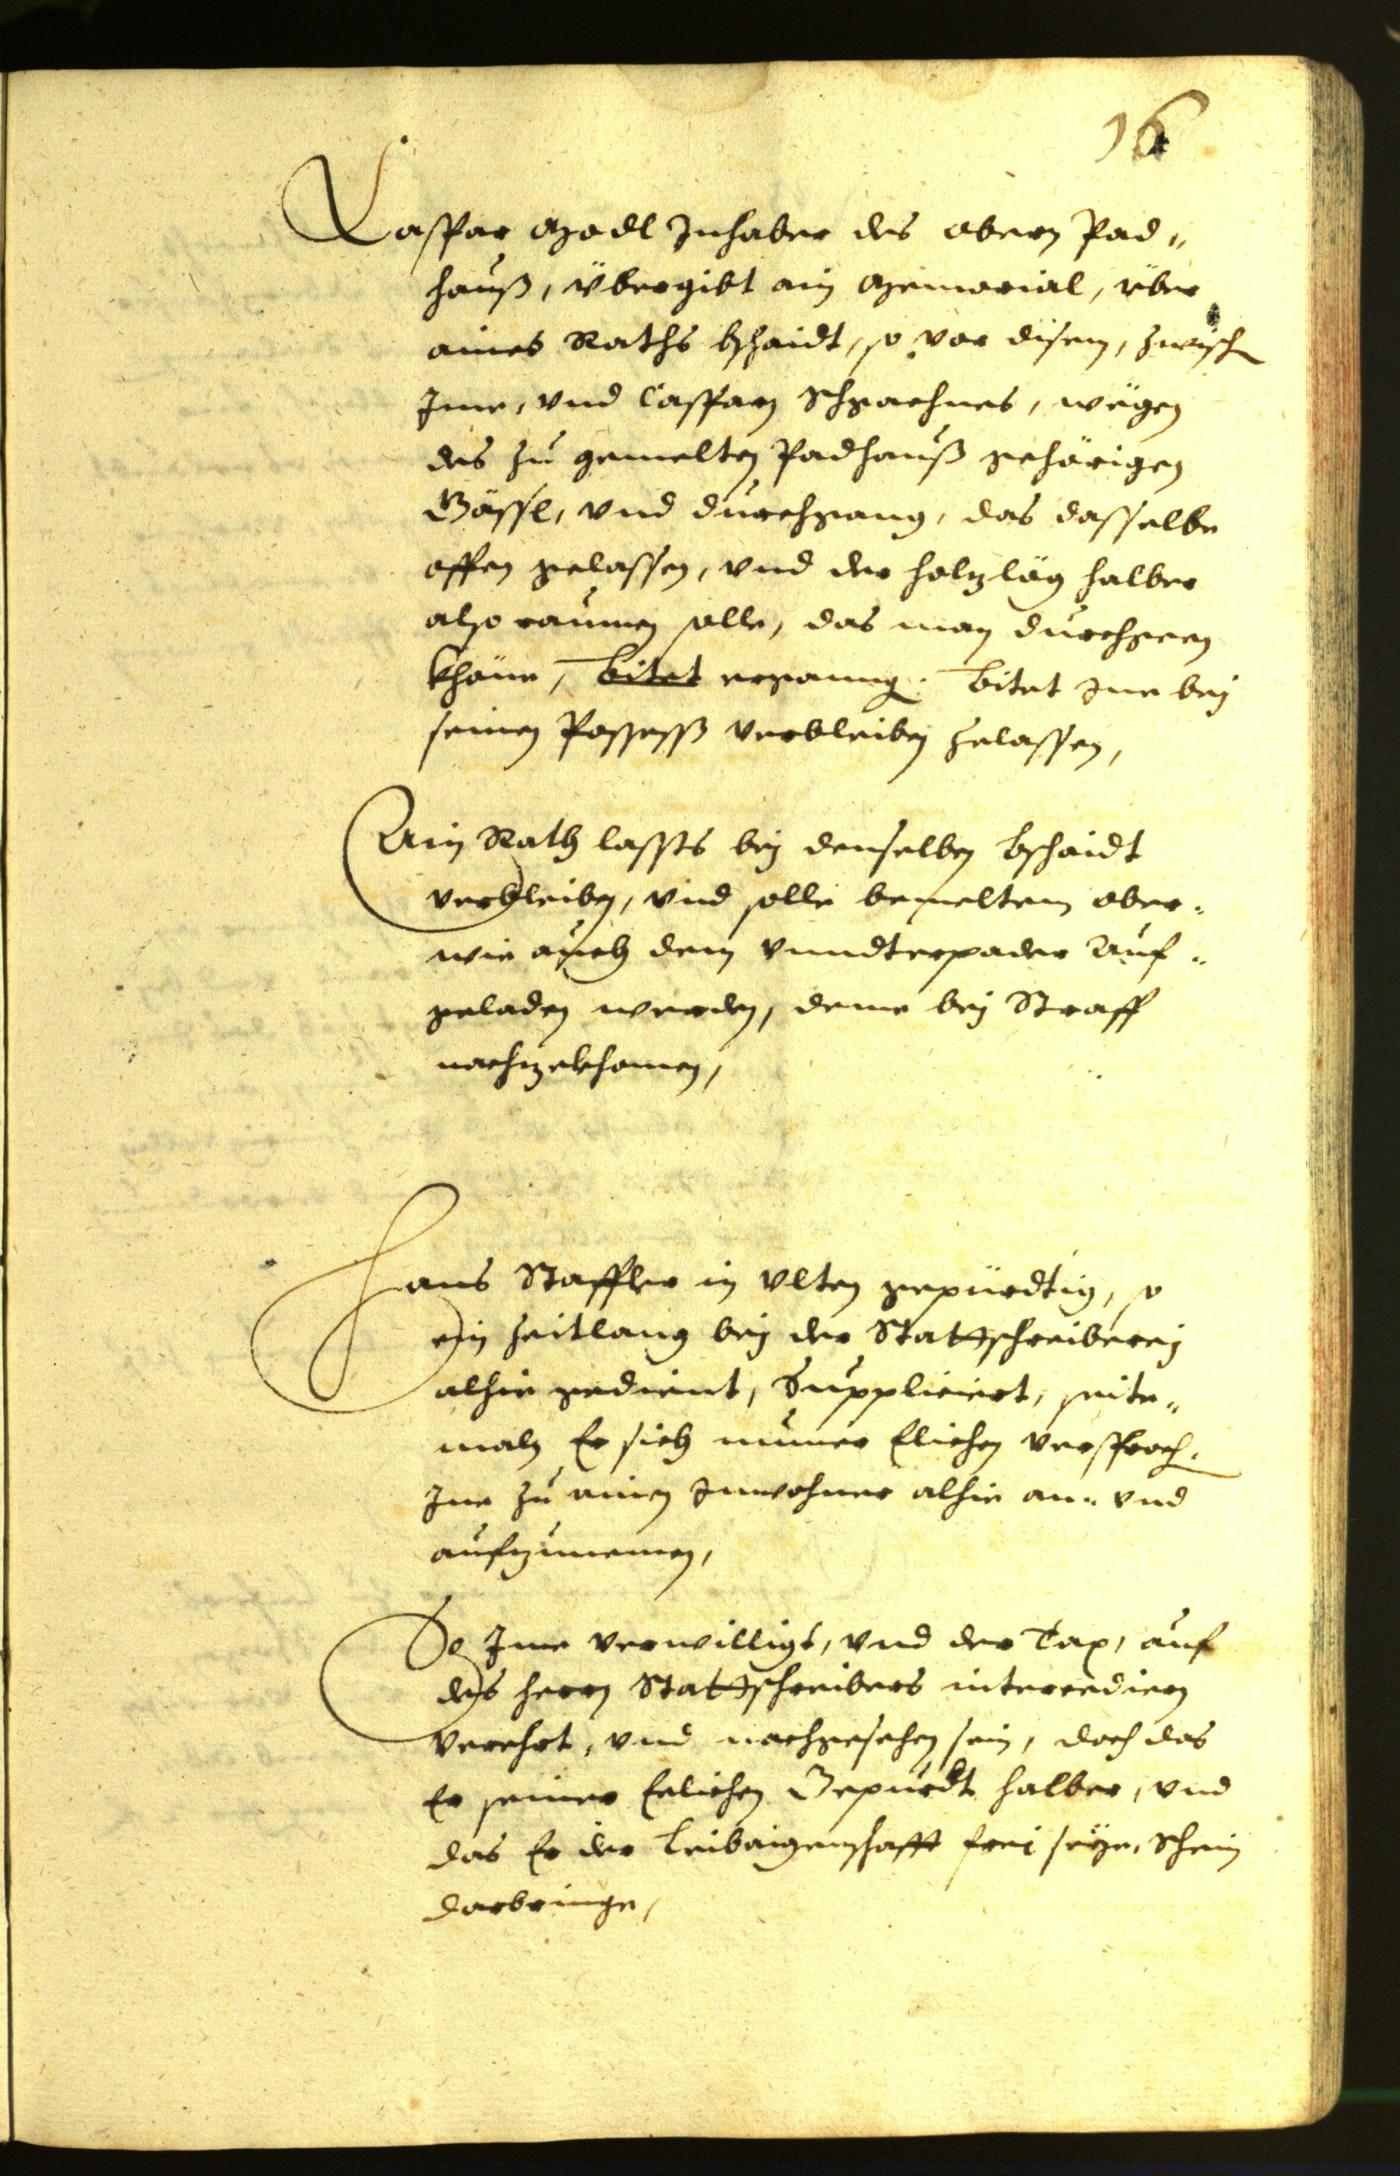 16
Caspar Madl Inhaber des obern Pad„
hauß, übergibt ain Memorial, über
aines Raths bschaidt, so vor disem, zwisch
Ime, vnd Casparn wegen
des zu gemelten Padhauß gehörigen
Gässl, vnd durchgang, das dasselbe
offen gelassen, vnd der holzläg halber
also raumen solle, das man durchgeen
khöne, bitet ergangen. bitet Ine bej
seinen Possess verbleiben zelassen,
Ain Rath lassts bej denselben bschaidt
verbleiben, vnd solle bemeltem ober-
wie auch dem vnndterpader Auf-
geladen werden, deme bej Straff
nachzekhomen,
Hans Staffler in Vlten gepürdtig, so
ein zeitlang bej der Stattschreiberej
alhie gedient, Suppliciert, seite„
maln Er sich numer Elichen versproch.
Ine zu ainen Inwohner alhie an- vnd
aufzunemen,
So Ime verwilligt, vnd der Tax, auf
des herrn Stattschreibers intercediern
verehrt, vnd nachgesehen sein, doch das
Er seiner Eelichen Gepurdt halber, vnd
das Er der Leibaigenschafft frej seye, Schein
darbringe,